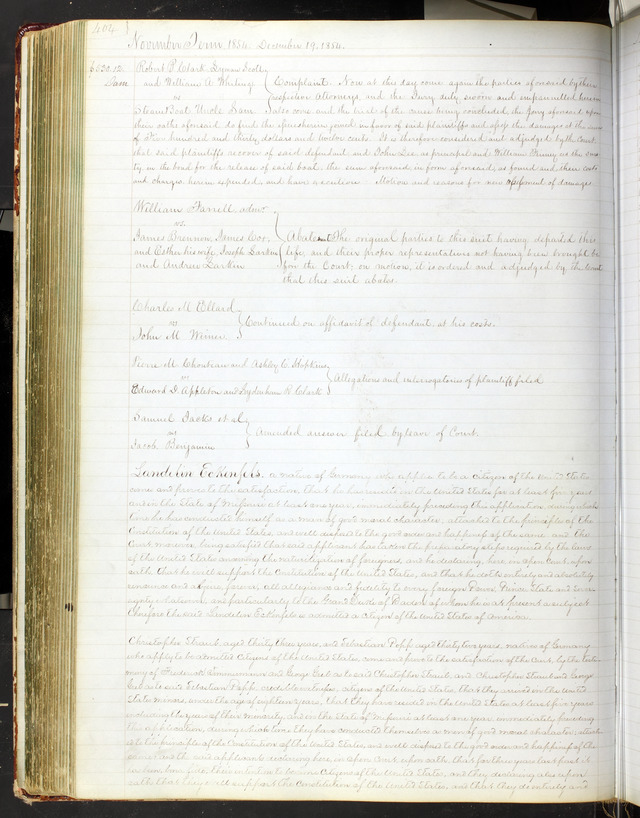 404
November Term 1854. December 19, 1854.
6330.12.
Robert P Clark Lyman Scott
and William A Whiting
vs
Steam Boat Uncle Sam.
Complaint. Now at this day come again the parties aforesaid by their
respective Attorneys and the Jury duly sworn and empannelled herein
also come and the trial of the cause being concluded the Jury aforesaid upon
their oaths aforesaid do find the issue joined in favor of said plaintiffs and assess the damages at the sum
of three hundred and thirty dollars and twelve cents. It is therefore considered and adjudged by the Court
that said plaintiffs recover of said defendant and John Lee as principal and William Money as the secu
ty in the bond for the release of said boat, the sum aforesaid in form aforesaid, as found and their costs
and charges herein expended, and have execution. Motion and reasons for new assessment of damages.
William Farrell admr.
vs.
James Brennon, James Cor,
and Esther his wife Joseph Larkin
and Andrew Larkin
Abatement The original parties to this suit having departed this
life, and their proper representatives not having been brought be
fore the Court, on motion, it is ordered and adjudged by the Court
that this suit abates.
Charles M Ellard
vs
John M Wimer.
Continued on affidavit of defendant, at his costs.
Pierre M. Chouteau and Ashley C. Hopkins
vs
Edward D. Appleton and Lydenham R. Clark
Allegations and interrogatories of plaintiff filed
Samuel Jacks et al
vs
Jacob Benjamin
Amended answer filed by leave of Court.
Landelin Eckenfels. a native of Germany who applies to be a citizen of the United States
came and proves to the satisfaction, that he has resided in the United States for at least five years
and in the State of Missouri at least one year, immediately preceding this application, during which
time he has conducted himself as a man of good moral character, attached to the principles of the
Constitution of the United States, and well disposed to the good order and happiness of the same, and the
Court moreover being satisfied that said applicant has taken the preparatory steps required by the laws
of the United States concerning the naturalization of foreigners, and he declaring, here, in open Court, upon
oath, that he will support the Constitution of the United States, and that he doth absolutely and entirely
renounce and abjure, forever, all allegiance and fidelity to every foreign Power, Prince, State and sover
eignty whatsoever, and particularly to the Grand Duke of Baden of whom he is at present a subject
Therefore the said Landelin Eckenfels is admitted a citizen of the United States of America.
Christopher Straub, aged thirty three years, and Sebastian Popp aged thirty two years, natives of Germany
who apply to be admitted citizens of the United States, come and prove to the satisfaction of the Court, by the testi
mony of Frederick and George Geb as to said Christopher Straub, and Christopher Straub and George
Geb as to said Sebastian Popp, credible witnesses, citizens of the United States, that they arrived in the United
States minors, under the age of eighteen years, that they have resided in the United States at least five years
including the years of their minority, and in the State of Missouri at least one year, immediately preceding
this application, during which time they have conducted themselves as men of good moral character, attach
ed to the principles of the Constitution of the United States, and well disposed to the good order and happiness of the
same, and the said applicants declaring here, in open Court upon oath, that for three years last past it
has been bona fide their intention to become citizens of the United States, and they declaring also upon
oath that they will support the Constitution of the United States, and that they do entirely and